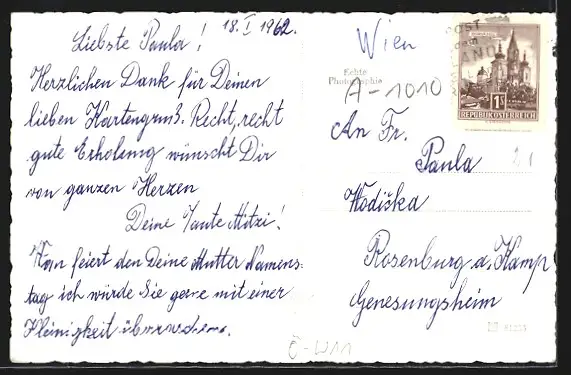 18. I 1962.
Liebste Paula!
Herzlichen Dank für Deinen
lieben Kartengruß. Recht, recht
gute Erholung wünscht Dir
von ganzen Herzen
Deine Tante Mitzi!
feiert den Deine Mutter Namens-
tag ich würde Sie gerne mit einer
Kleinigkeit überraschen.
Wien
Echte
Photographie
A-1010
An Fr.
Paula
Wodiška
Rosenburg a. Kamp
Genesungsheim
POST
1S
REPUBLIK ÖSTERREICH
Č-W11